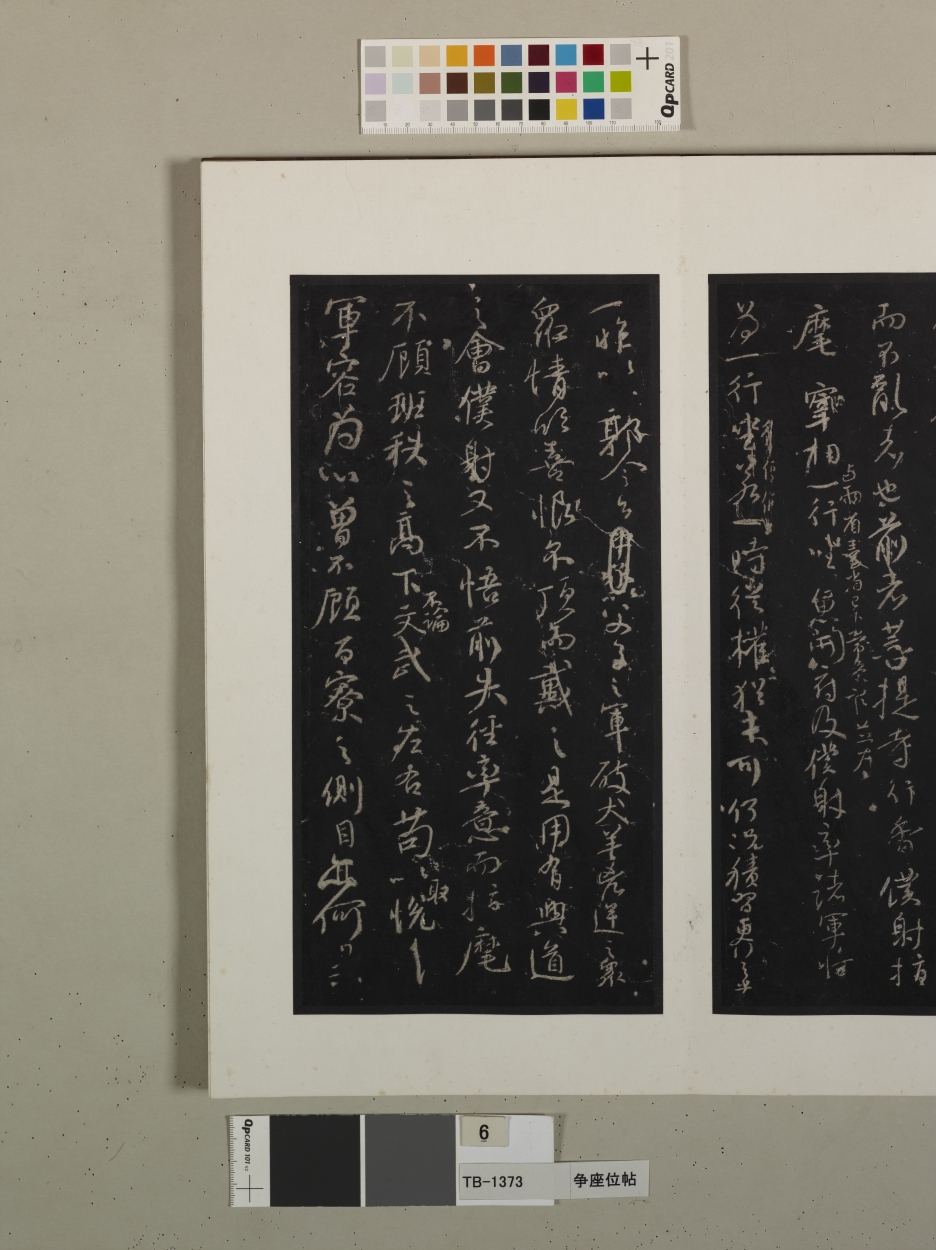 而不亂者也前者菩提寺行香僕射指
麾宰相一行坐魚開府及僕射率諸軍將
與兩省臺省已下常參官並為
為一行坐若一時從權猶未可何況積習更行之乎
一昨以郭令公以父子之軍破犬羊兇逆之眾
眾情欣喜恨不頂而戴之是用有興道
之會僕射又不悟前失徑率意而指麾
不顧班秩之高下文武之左右苟以取悅
不論
軍容為心曾不顧百寮之側目亦何
QpCARD 201
QpCARD 101 v3
6
TB-1373
争座位帖